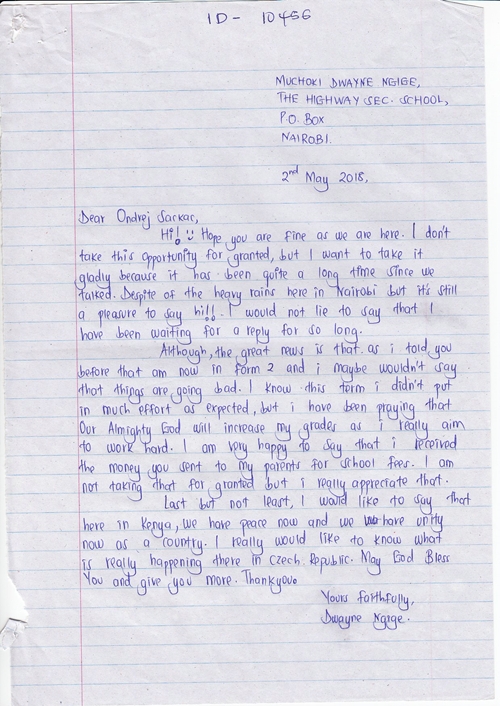 ID - 10456
MUCHOKI DWAYNE NGIGE,
THE HIGHWAY SEC. SCHOOL,
P.O. BOX
NAIROBI.
2nd May 2018.
Dear Ondrej Sackac,
Hi! Hope you are fine as we are here. I don't
take this opportunity for granted, but I want to take it
gladly because it has been quite a long time since we
talked. Despite of the heavy rains here in Nairobi but it's still
a pleasure to say hi!!. I would not lie to say that I
have been waiting for a reply for so long.
Although, the great news is that as i told you
before that am now in form 2 and i maybe wouldn't say
that things are going bad. I know this term i didn't put
in much effort as expected, but i have been praying that
Our Almighty God will increase my grades as i really aim
to work hard. I am very happy to say that i received
the money you sent to my parents for school fees. I am
not taking that for granted but i really appreciate that.
Last but not least, I would like to say that
here in Kenya, we have peace now and we have unity
now as a country. I really would like to know what
is really happening there in Czech Republic. May God Bless
You and give you more. Thankyou.
Yours faithfully,
Dwayne Ngige.